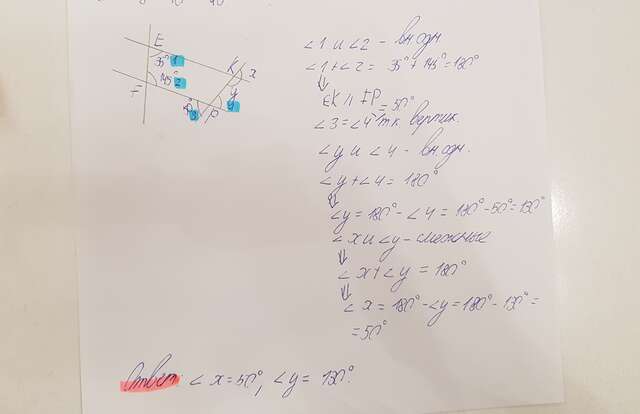 E
35° 1
K
x
145° 2
F
y
3
P
4
∠1 и ∠2 - вн.одн
∠1+∠2 = 35°+145°=180°
⇓
EK || FP
∠3=∠4=50° т.к. вертик.
∠y и ∠4 - вн.одн.
∠y+∠4=180°
⇓
∠y=180°-∠4=180°-50°=130°
∠x и ∠y-смежные
⇓
∠x+∠y=180°
⇓
∠x=180°-∠y=180°-130°=
=50°
Ответ: ∠x=50°, ∠y=130°.